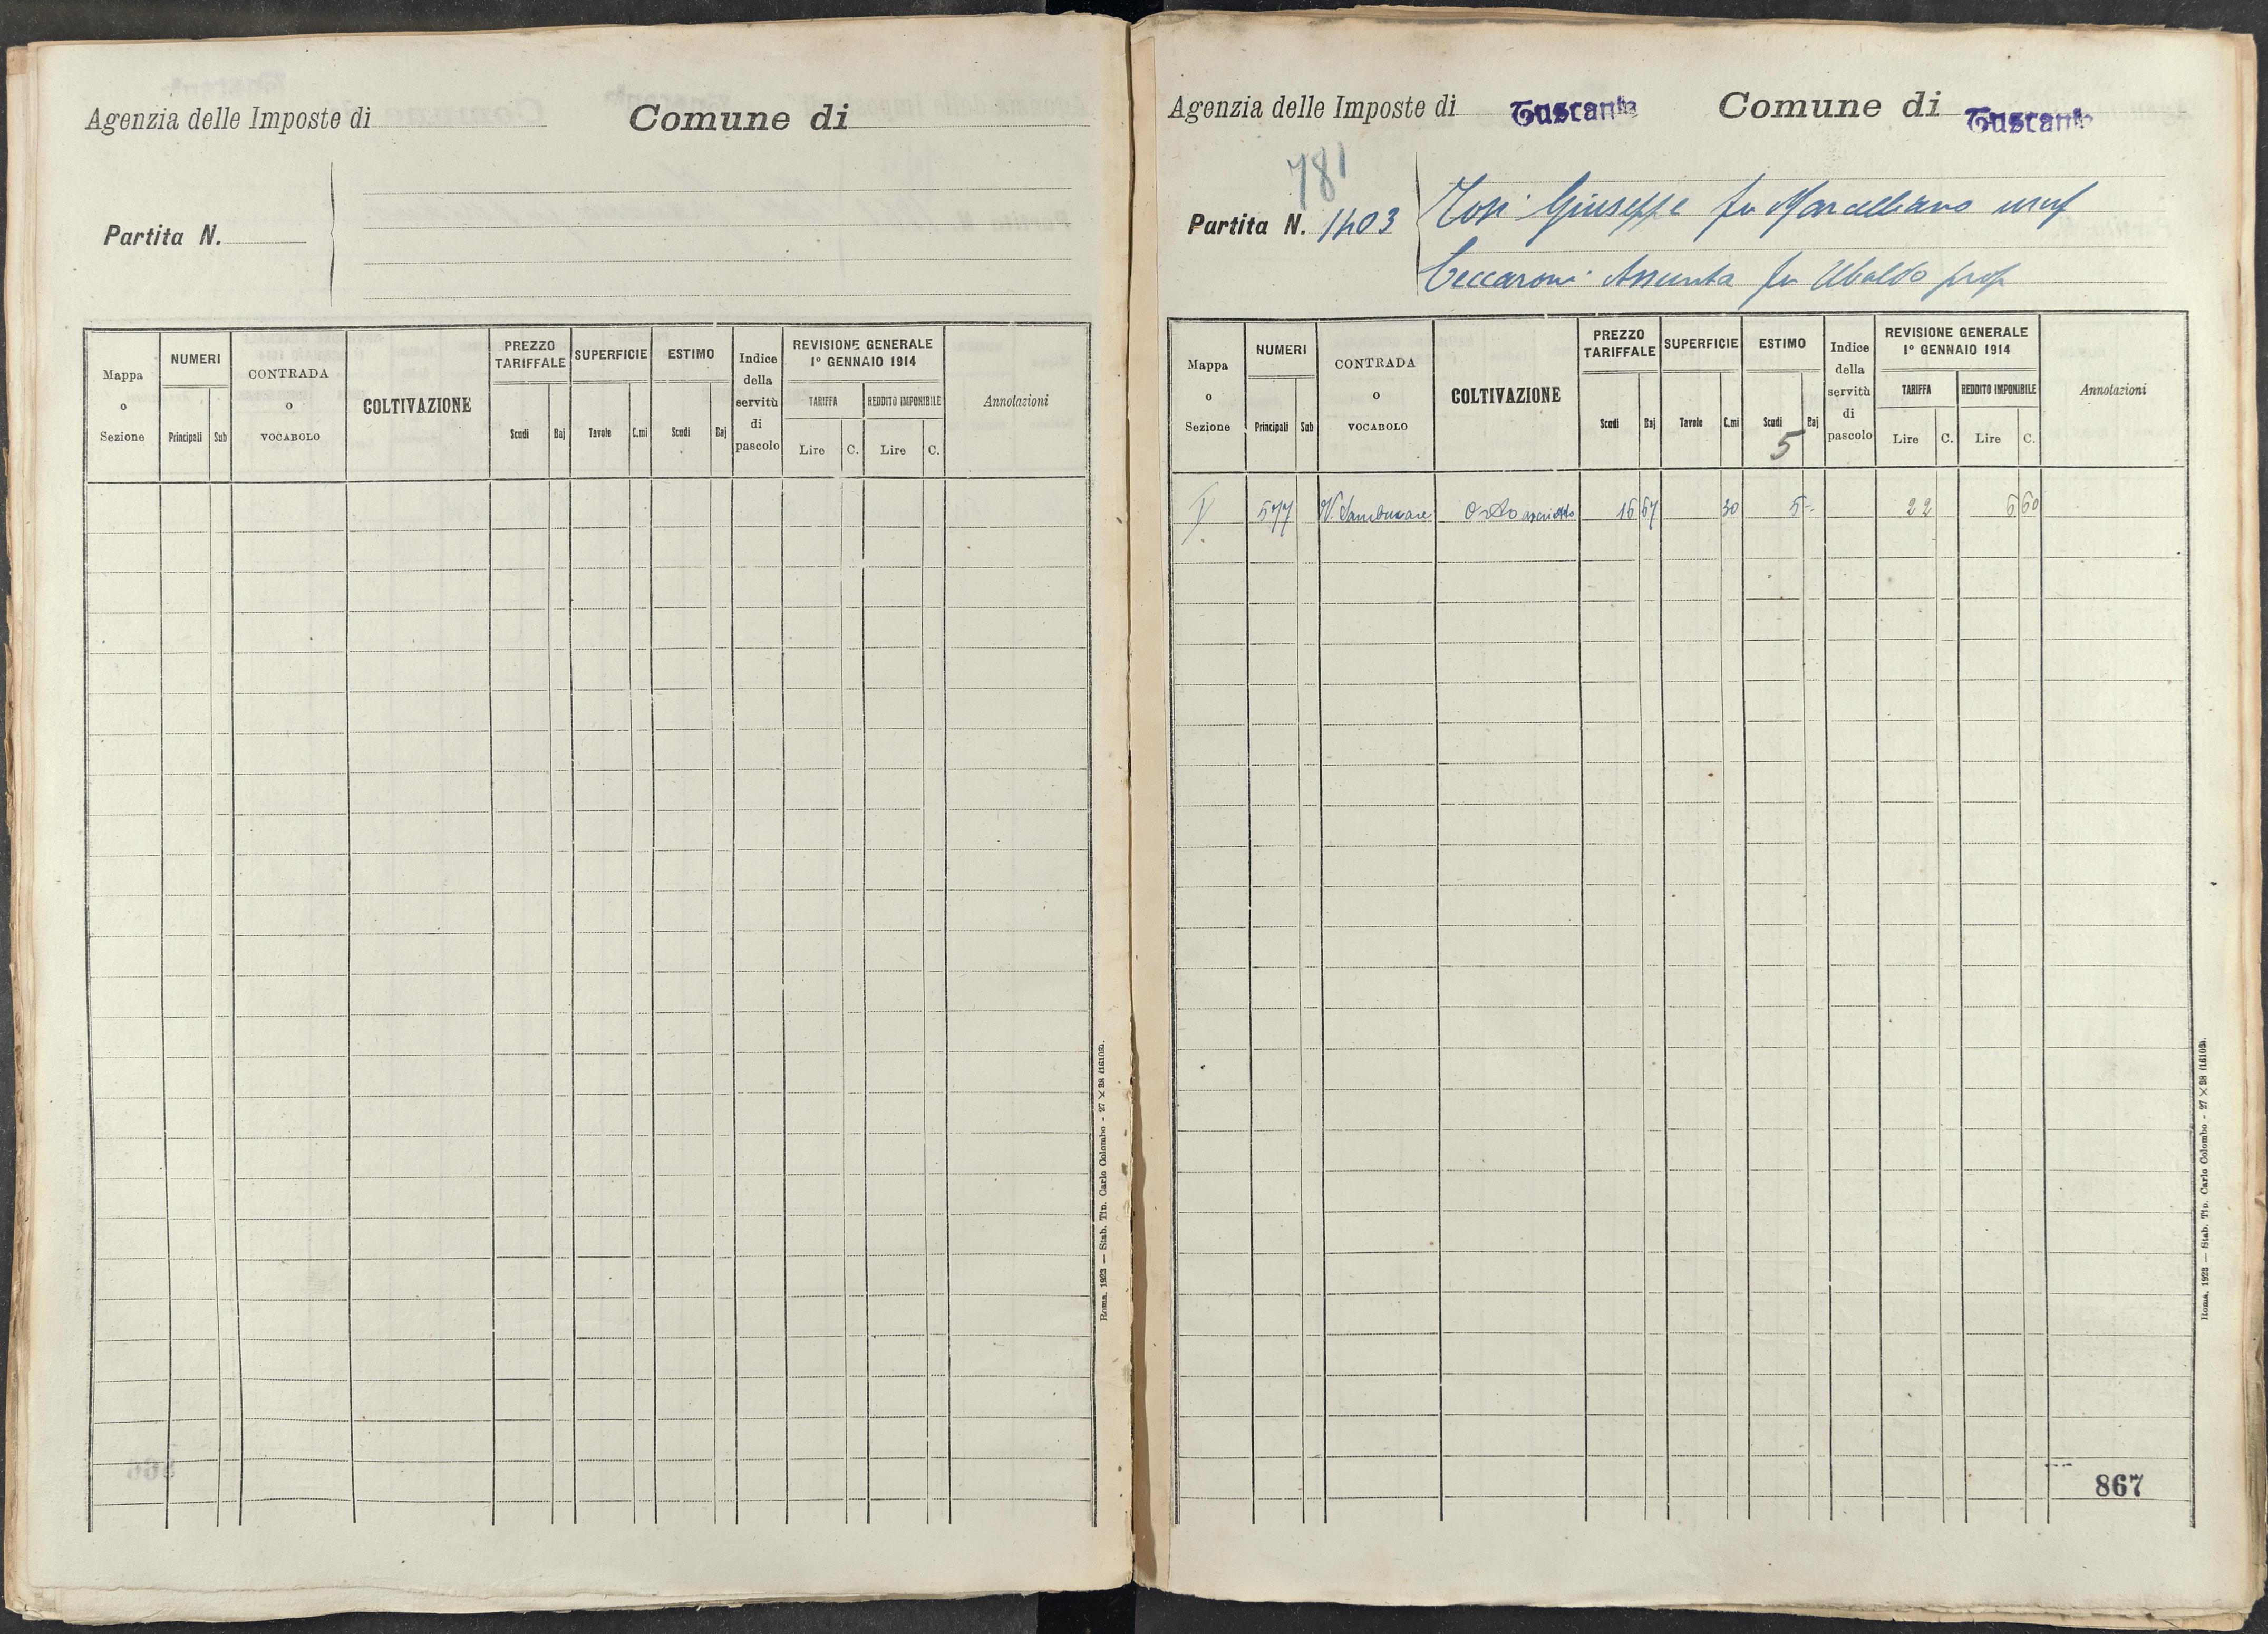 Agenzia delle Imposte di
Comune di
Partita N.
Mappa o Sezione
NUMERI
Principali
Sub
CONTRADA o VOCABOLO
COLTIVAZIONE
PREZZO TARIFFALE
Scudi
Baj
SUPERFICIE
Tavole
C.mi
ESTIMO
Scudi
Baj
Indice della servitù di pascolo
REVISIONE GENERALE
1° GENNAIO 1914
TARIFFA
REDDITO IMPONIBILE
Lire
C.
Lire
C.
Annotazioni
Roma, 1923 — Stab. Tip. Carlo Colombo - 27 × 38 (16102).
Agenzia delle Imposte di Tuscania
Comune di Tuscania
781
Partita N. 1403
Tosi Giuseppe fu Marcelliano usuf
Ceccaroni Assunta fu Ubaldo prop
Mappa o Sezione
NUMERI
Principali
Sub
CONTRADA o VOCABOLO
COLTIVAZIONE
PREZZO TARIFFALE
Scudi
Baj
SUPERFICIE
Tavole
C.mi
ESTIMO
Scudi
Baj
5
Indice della servitù di pascolo
REVISIONE GENERALE
1° GENNAIO 1914
TARIFFA
REDDITO IMPONIBILE
Lire
C.
Lire
C.
Annotazioni
V 577 Orto asciutto 16 67 30 5 - 22 6 60
867
Roma, 1923 — Stab. Tip. Carlo Colombo - 27 × 38 (16102).